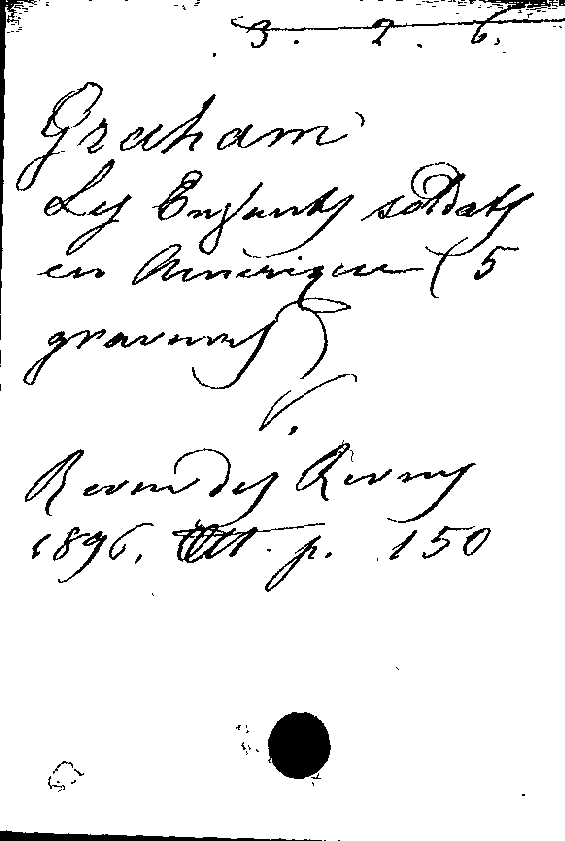 3. 2. 6.
Graham
Les Enfants soldats
en Amérique (5
gravures)
V.
Revue des Revues
1896. p. 150